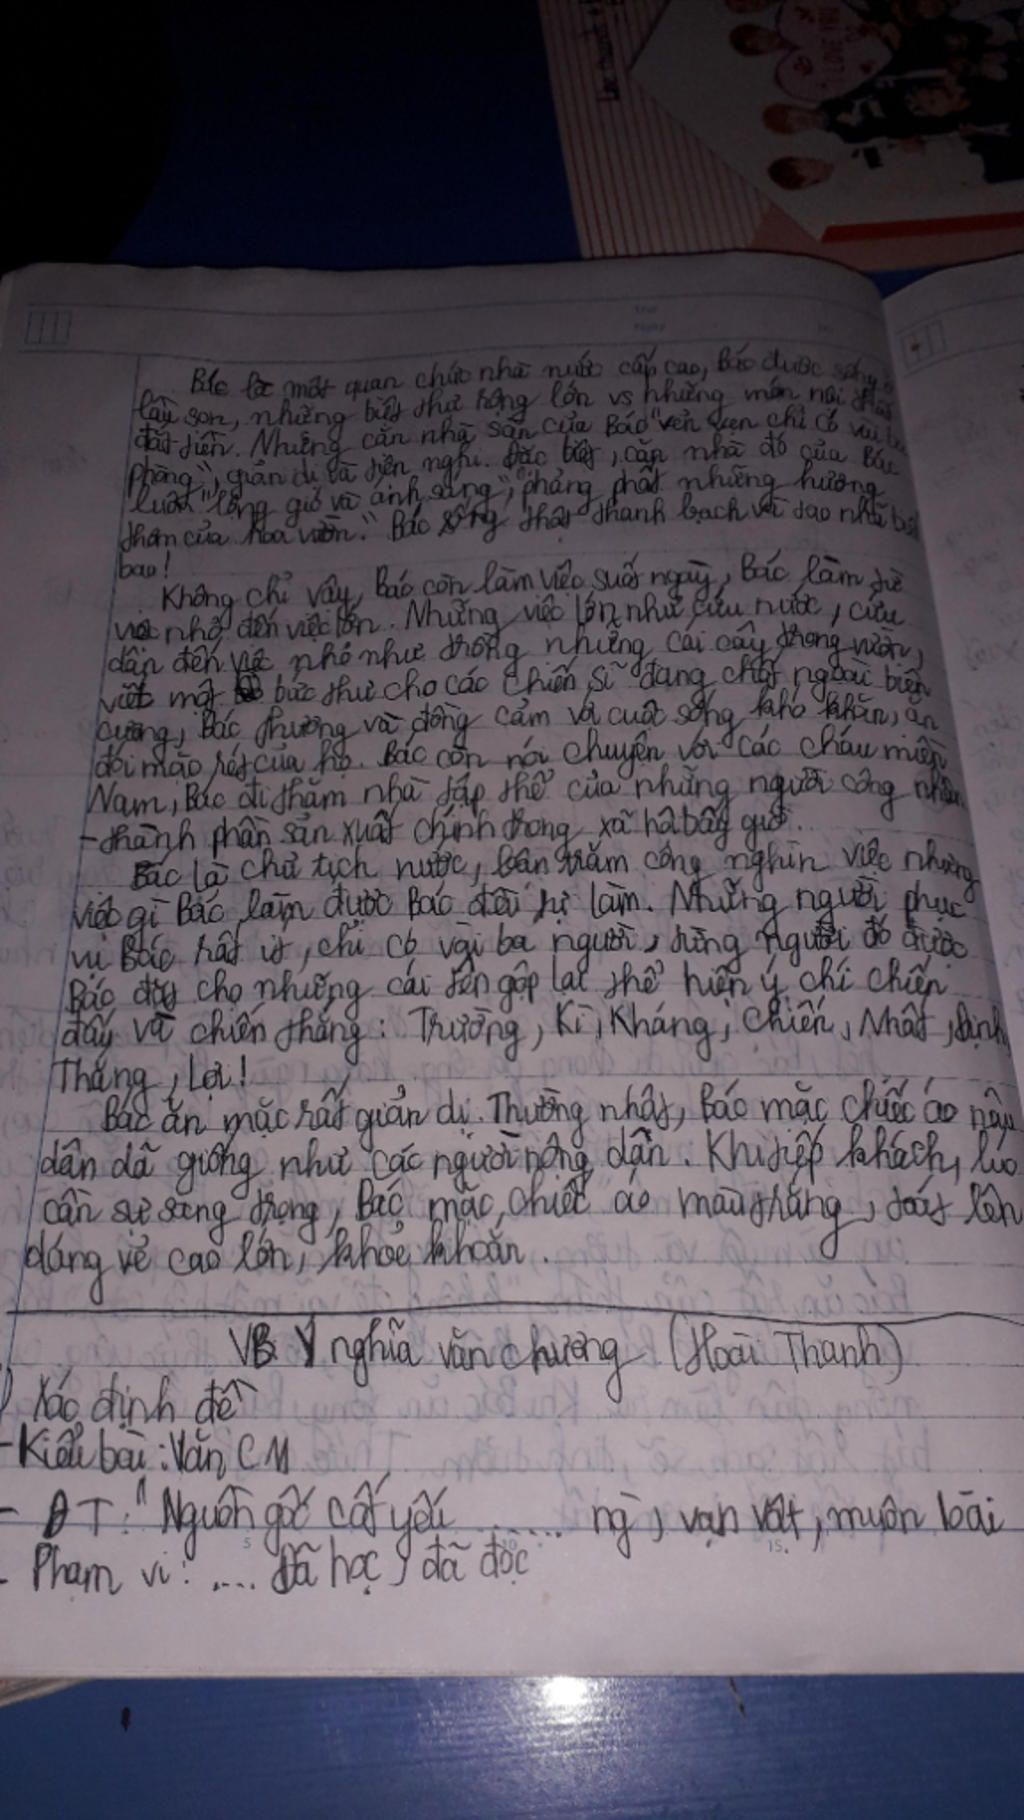 I LOVE YOU
Bác là một quan chức nhà nước cấp cao, Bác được sống
lầu son, những biệt thự rộng lớn vs những món nội thất
đắt tiền. Nhưng căn nhà sàn của Bác "vẻn vẹn chỉ có vài ba
phòng", giản dị và tiện nghi. Đặc biệt, căn nhà đó của Bác
luôn "lộng gió và ánh sáng", "phảng phất những hương
thơm của hoa vườn." Bác sống thật thanh bạch và tao nhã biết
bao!
Không chỉ vậy, Bác còn làm việc suốt ngày, Bác làm từ
việc nhỏ đến việc lớn. Những việc lớn như cứu nước, cứu
dân đến việc nhỏ như trồng những cái cây trong vườn,
viết một bức thư cho các chiến sĩ đang chật ngoài biên
cương, Bác thương và đồng cảm với cuộc sống khó khăn, ăn
đói mặc rét của họ. Bác còn nói chuyện với các cháu miền
Nam, Bác đi thăm nhà tập thể của những người công nhân
- thành phần sản xuất chính trong xã hội bấy giờ.
Bác là chủ tịch nước, bận trăm công nghìn việc nhưng
việc gì Bác làm được Bác đều tự làm. Những người phục
vụ Bác rất ít, chỉ có vài ba người, từng người đó được
Bác đặt cho những cái tên gộp lại thể hiện ý chí chiến
đấy và chiến thắng: Trường, Kì, Kháng, Chiến, Nhất, Định,
Thắng, Lợi!
Bác ăn mặc rất giản dị. Thường nhật, Bác mặc chiếc áo nâu
dân dã giống như các người nông dân. Khi tiếp khách, lúc
cần sự sang trọng, Bác mặc chiếc áo màu trắng, toát lên
dáng vẻ cao lớn, khỏe khoắn.
VB Ý nghĩa văn chương (Hoài Thanh)
Xác định đề
- Kiểu bài: Văn CM
- ĐT: "Nguồn gốc cốt yếu ...... ng, vạn vật, muôn loài
- Phạm vi: .... đã học, đã đọc